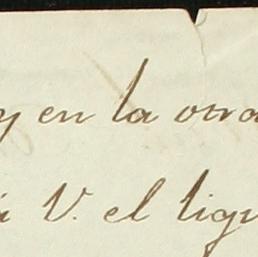 y en la otra
á V. el ligu